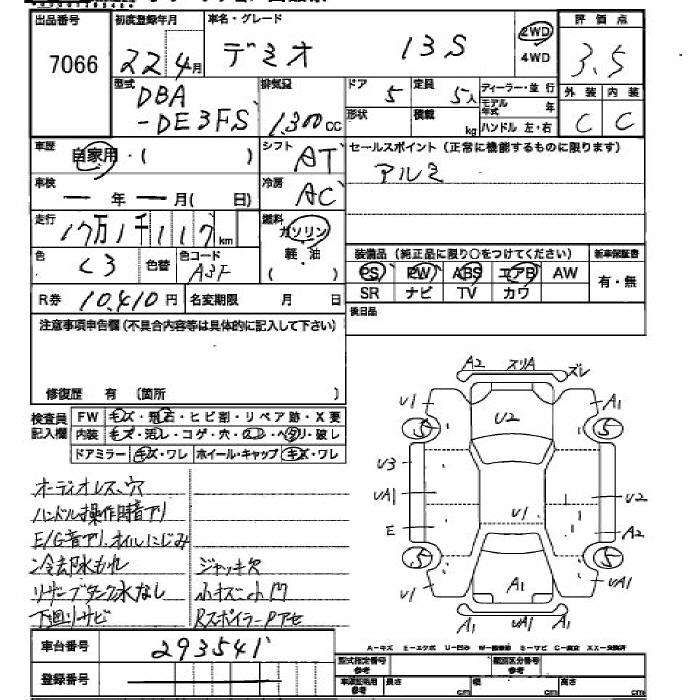 出品番号 7066
初度登録年月 22年4月
車名・グレード デミオ 13S
2WD
4WD
評価点 3.5
外装 内装
C C
型式 DBA
-DE3FS
排気量 1,300 CC
ドア 5
定員 5人
形状
積載 kg
ディーラー・並行
モデル年式 年
ハンドル 左・右
車歴 自家用・( )
シフト AT
セールスポイント(正常に機能するものに限ります)
アルミ
車検 ー年ー月( 日)
冷房 AC
走行 17万1千117km
燃料 ガソリン
軽・油
( )
色 色替 色コード A3F
R券 10,410円 名変期限 月 日
装備品(純正品に限り○をつけてください) 新車保証書
PS PW ABS エアB AW 有・無
SR ナビ TV カワ
後日品
注意事項申告欄(不具合内容等は具体的に記入して下さい)
修復歴 有 〔箇所 〕
検査員記入欄
FW キズ・飛石・ヒビ割・リペア跡・X要
内装 キズ・汚レ・コゲ・穴・・ヘタリ・破レ
ドアミラー キズ・ワレ ホイール・キャップ キズ・ワレ
オーディオレス、穴
ハンドル操作時音アリ
E/G音アリ、オイルにじみ
冷却水もれ ジャッキ欠
リザーブタンク水なし 小キズ小凹
下廻りサビ Rスポイラーアセ
車台番号 293541
登録番号
A2 スリA ズレ
U1 A1
U2
5 5
U3
UA1 U2
U1
E A2
5 5
U1 A1 UA1
A1 UA1 A1
A-キズ E-エクボ U-凹み
型式指定番号 参考
類別区分番号 参考
車庫証明用 参考 長さ cm 幅 cm 高さ cm